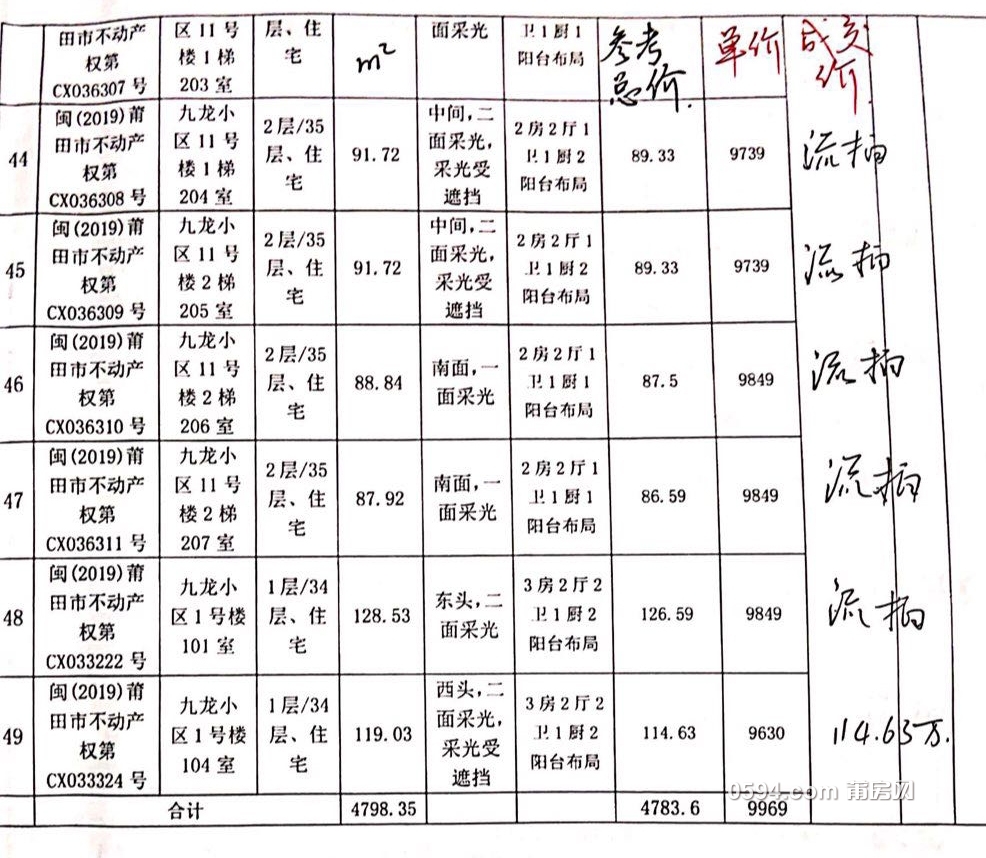 田市不动产
权第
CX036307 号
区 11 号
楼 1 梯
203 室
层、住
宅
m²
面采光
卫 1 厨 1
阳台布局
参考
总价
单价
成交
价
44
闽(2019)莆
田市不动产
权第
CX036308 号
九龙小
区 11 号
楼 1 梯
204 室
2 层/35
层、住
宅
91.72
中间，二
面采光，
采光受
遮挡
2 房 2 厅 1
卫 1 厨 2
阳台布局
89.33
9739
流拍
45
闽(2019)莆
田市不动产
权第
CX036309 号
九龙小
区 11 号
楼 2 梯
205 室
2 层/35
层、住
宅
91.72
中间，二
面采光，
采光受
遮挡
2 房 2 厅 1
卫 1 厨 2
阳台布局
89.33
9739
流拍
46
闽(2019)莆
田市不动产
权第
CX036310 号
九龙小
区 11 号
楼 2 梯
206 室
2 层/35
层、住
宅
88.84
南面，一
面采光
2 房 2 厅 1
卫 1 厨 1
阳台布局
87.5
9849
流拍
47
闽(2019)莆
田市不动产
权第
CX036311 号
九龙小
区 11 号
楼 2 梯
207 室
2 层/35
层、住
宅
87.92
南面，一
面采光
2 房 2 厅 1
卫 1 厨 1
阳台布局
86.59
9849
流拍
48
闽(2019)莆
田市不动产
权第
CX033222 号
九龙小
区 1 号楼
101 室
1 层/34
层、住
宅
128.53
东头，二
面采光
3 房 2 厅 2
卫 1 厨 2
阳台布局
126.59
9849
流拍
49
闽(2019)莆
田市不动产
权第
CX033324 号
九龙小
区 1 号楼
104 室
1 层/34
层、住
宅
119.03
西头，二
面采光，
采光受
遮挡
3 房 2 厅 2
卫 1 厨 2
阳台布局
114.63
9630
114.63万.
合计
4798.35
4783.6
9969
0594.com 莆房网